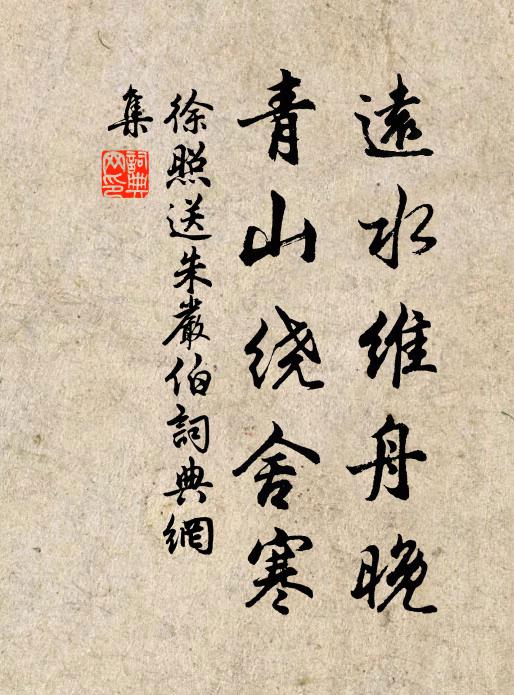 遠水维舟晚
青山绕舍寒
徐照送朱嚴伯詞典網
集
詞典网印